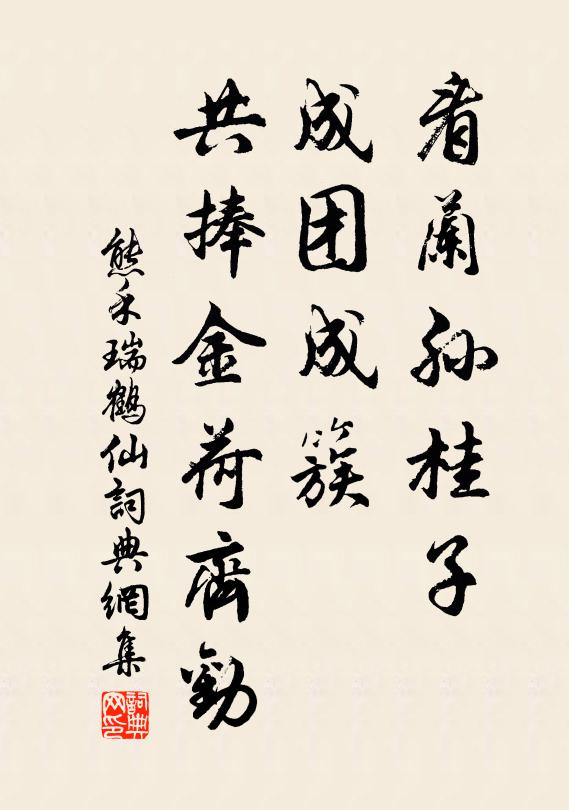 看蘭孙桂子
成团成簇
共捧金荷齊勸
熊禾瑞鶴仙詞典網集
詞典网印